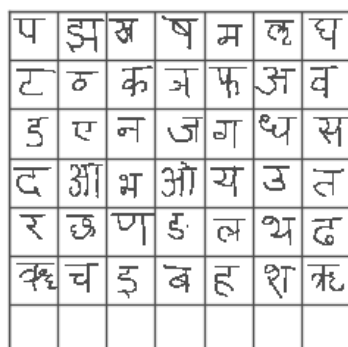 प झ ख ष म ऌ घ
ट ठ क ञ फ अ व
ड ए न ज ग ध स
द भ ओ य उ त
र छ ण ङ ल थ ढ
ॠ च इ ब ह श ऋ